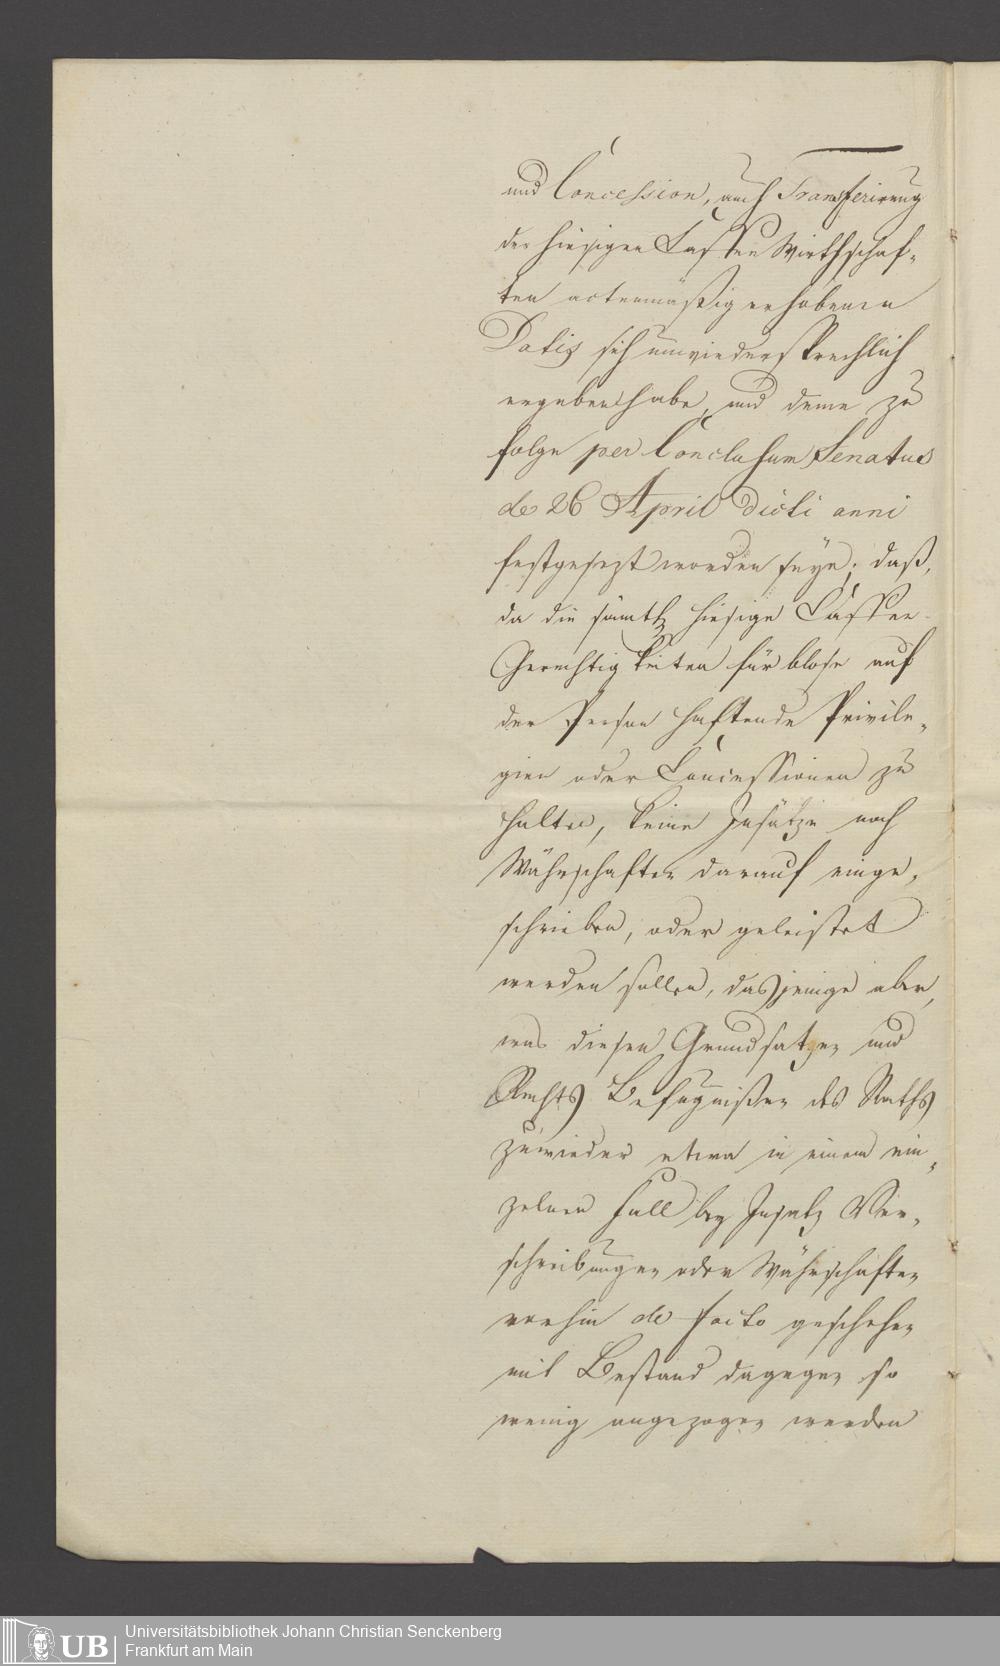 und Concession, auch Transferirung
der hiesigen Caffee Wirthschaf-
ten actenmäßig erhobenen
Datis sich unwiedersprechlich
ergeben habe, und deme zu
folge per Conclusum Senatus
de 26 April dicti anni
festgesezt worden seye; daß,
da die sämtl. hiesige Caffee-
Gerechtigkeiten für blose auf
der Person haftende Privile-
gien oder Concessionen zu
halten, keine Insätze noch
Währschaften darauf einge-
schrieben, oder geleistet
werden sollen, dasjenige aber,
was diesen Grundsatzen und
Rechts Befugnißen des Raths
zuwieder etwa in einem ein-
zelnen Fall bey Insatz Ver-
schreibungen oder Währschaften
vorhin de facto geschehen
mit Bestand dagegen so
wenig angezogen werden
UB
Universitätsbibliothek Johann Christian Senckenberg
Frankfurt am Main